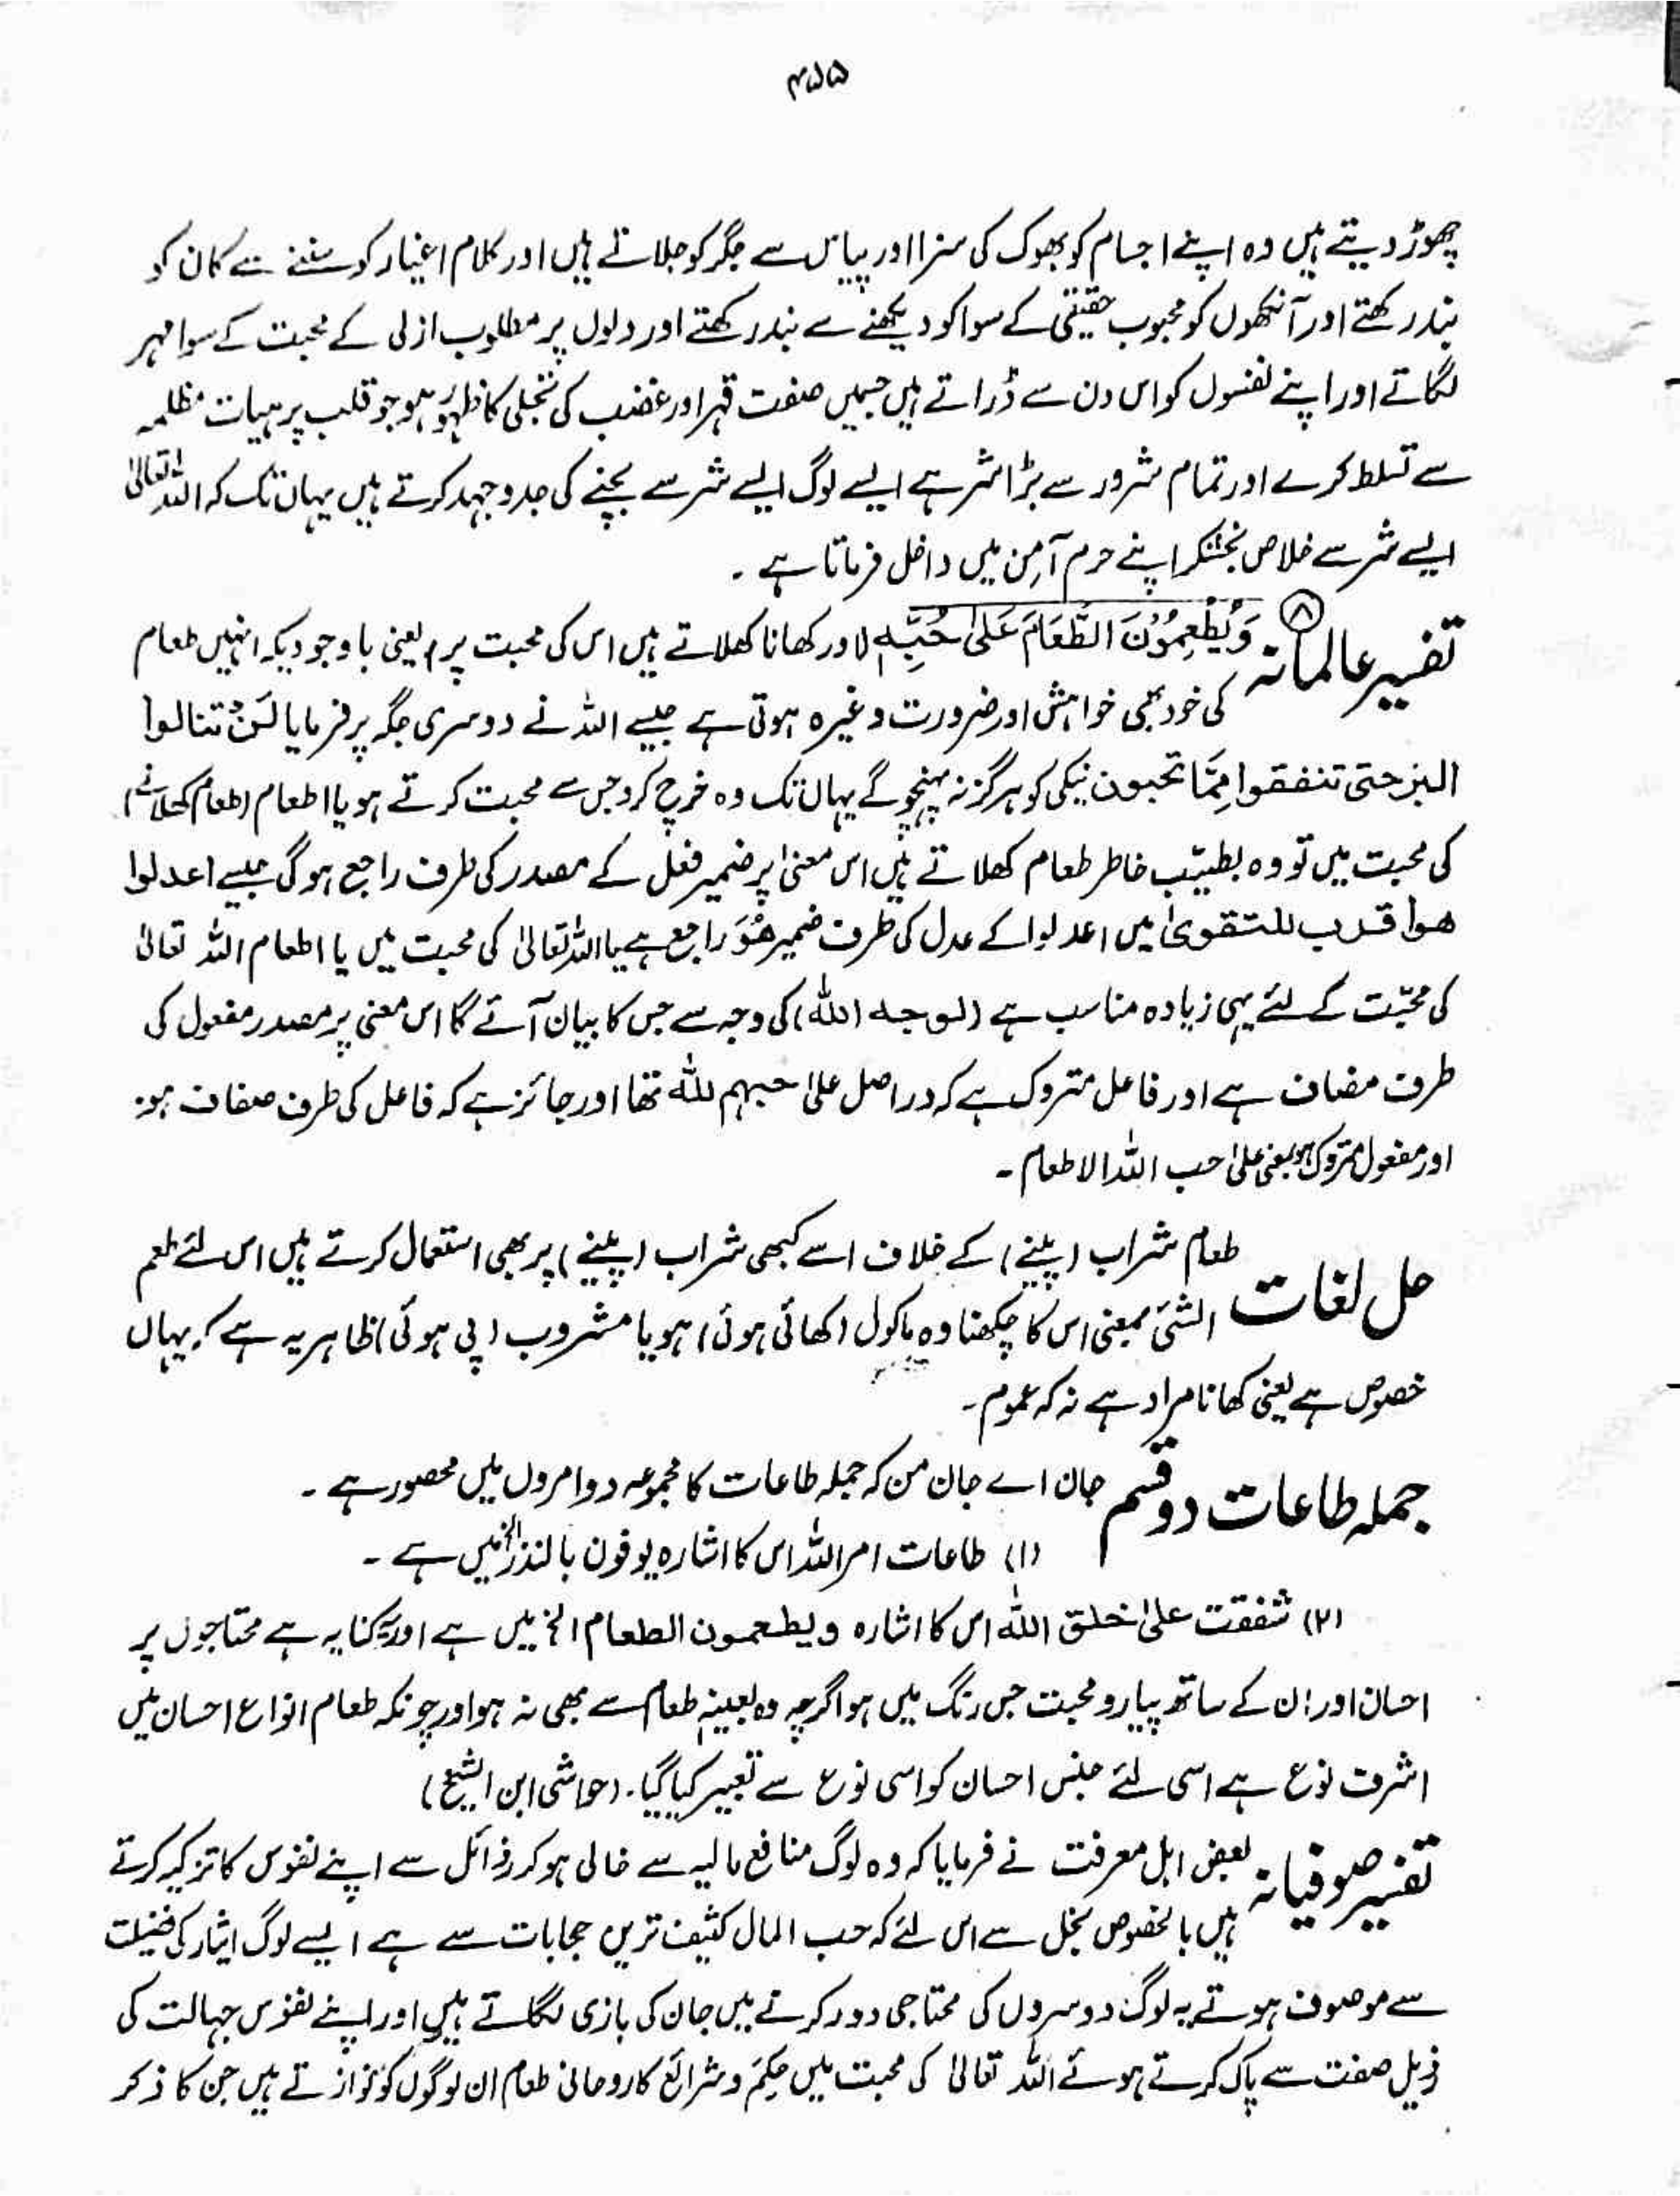 ۴۵۵
چھوڑ دیتے ہیں وہ اپنے اجسام کو بھوک کی سزا اور پیاس سے جگر کو جلاتے ہیں اور کلام اغیار کو سننے سے کان کو
بند رکھتے اور آنکھوں کو محبوب حقیقی کے سوا کو دیکھنے سے بند رکھتے اور دلوں پر مطلوب ازلی کے محبت کے سوا مہر
لگاتے اور اپنے نفسوں کو اس دن سے ڈراتے ہیں جسمیں صفت قہر اور غضب کی تجلی کا ظہور ہو جو قلب پر ہیات مظلمہ
سے تسلط کرے اور تمام شرور سے بڑا شر ہے ایسے لوگ ایسے شر سے بچنے کی جدوجہد کرتے ہیں یہاں تک کہ اللہ تعالیٰ
ایسے شر سے خلاص بخشکر اپنے حرم آمِن میں داخل فرماتا ہے ۔
تفسیر عالمانہ ⑧ وَيُطْعِمُوْنَ الطَّعَامَ عَلىٰ حُبِّهٖ اور کھانا کھلاتے ہیں اس کی محبت پر، یعنی باوجودیکہ انہیں طعام
کی خود بھی خواہش اور ضرورت وغیرہ ہوتی ہے جیسے اللہ نے دوسری جگہ پر فرمایا لَنْ تنالوا
البر حتی تنفقوا مِمَّا تحبون نیکی کو ہرگز نہ پہنچو گے یہاں تک وہ خرچ کرو جس سے محبت کرتے ہو یا اطعام (طعام کھلانے)
کی محبت میں تو وہ بطیّب خاطر طعام کھلاتے ہیں اس معنیٰ پر ضمیر فعل کے مصدر کی طرف راجع ہوگی جیسے اعدلوا
هو اقرب للتقوىٰ میں اعدلوا کے عدل کی طرف ضمیر ھُوَ راجع ہے یا اللہ تعالیٰ کی محبت میں یا اطعام اللہ تعالیٰ
کی محبّت کے لئے یہی زیادہ مناسب ہے (لوجه الله) کی وجہ سے جس کا بیان آئے گا اس معنی پر مصدر مفعول کی
طرف مضاف ہے اور فاعل متروک ہے کہ دراصل علیٰ حبہم للہ تھا اور جائز ہے کہ فاعل کی طرف مضاف ہو
اور مفعول متروک ہو یعنی علیٰ حب اللہ الاطعام ۔
حل لغات طعام شراب (پینے) کے خلاف اسے کبھی شراب (پینے) پر بھی استعمال کرتے ہیں اس لئے طعم
الشیٔ بمعنی اس کا چکھنا وہ ماکول (کھائی ہوئی) ہو یا مشروب (پی ہوئی) ظاہر یہ ہے کہ یہاں
خصوص ہے یعنی کھانا مراد ہے نہ کہ عموم ۔
جملہ طاعات دو قسم جان اے جان من کہ جملہ طاعات کا مجموعہ دو امروں میں محصور ہے ۔
(۱) طاعات امر اللہ اس کا اشارہ یوفون بالنذر الخ میں ہے ۔
(۲) شفقت علیٰ خلق اللہ اس کا اشارہ ویطعمون الطعام الخ میں ہے اور یہ کنایہ ہے محتاجوں پر
احسان اور ان کے ساتھ پیار و محبت جس رنگ میں ہو اگرچہ وہ بعینہٖ طعام سے بھی نہ ہو اور چونکہ طعام انواع احسان میں
اشرف نوع ہے اسی لئے جنس احسان کو اسی نوع سے تعبیر کیا گیا ۔ (حواشی ابن الشیخ)
تفسیر صوفیانہ بعض اہل معرفت نے فرمایا کہ وہ لوگ منافع مالیہ سے خالی ہو کر رذائل سے اپنے نفوس کا تزکیہ کرتے
ہیں بالخصوص بخل سے اس لئے کہ حب المال کثیف ترین حجابات سے ہے ایسے لوگ ایثار کی فضیلت
سے موصوف ہوتے یہ لوگ دوسروں کی محتاجی دور کرنے میں جان کی بازی لگاتے ہیں اور اپنے نفوس جہالت کی
ذیل صفت سے پاک کرتے ہوئے اللہ تعالیٰ کی محبت میں حِکَم و شرائع کا روحانی طعام ان لوگوں کو نوازتے ہیں جن کا ذکر